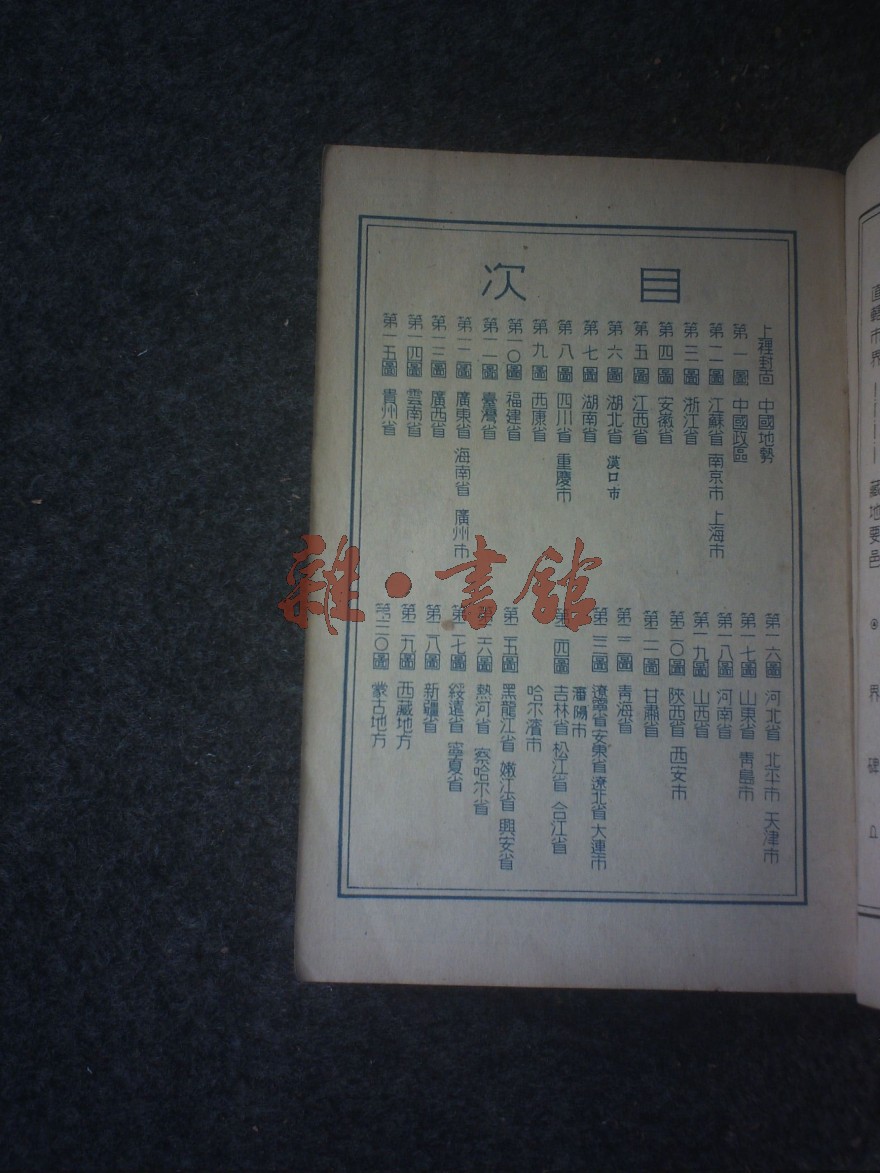 目次
上裡封面 中國地勢
第一圖 中國政區
第二圖 江蘇省 南京市 上海市
第三圖 浙江省
第四圖 安徽省
第五圖 江西省
第六圖 湖北省 漢口市
第七圖 湖南省
第八圖 四川省 重慶市
第九圖 西康省
第一〇圖 福建省
第一一圖 臺灣省
第一二圖 廣東省 海南省 廣州市
第一三圖 廣西省
第一四圖 雲南省
第一五圖 貴州省
第一六圖 河北省 北平市 天津市
第一七圖 山東省 靑島市
第一八圖 河南省
第一九圖 山西省
第二〇圖 陝西省 西安市
第二一圖 甘肅省
第二二圖 靑海省
第二三圖 遼寧省 安東省 遼北省 大連市
瀋陽市
第二四圖 吉林省 松江省 合江省
哈尔濱市
第二五圖 黑龍江省 嫩江省 興安省
第二六圖 熱河省 察哈尔省
第二七圖 綏遠省 寧夏省
第二八圖 新疆省
第二九圖 西藏地方
第三〇圖 蒙古地方
直轄市界 藏地要邑 界碑
雜·書館